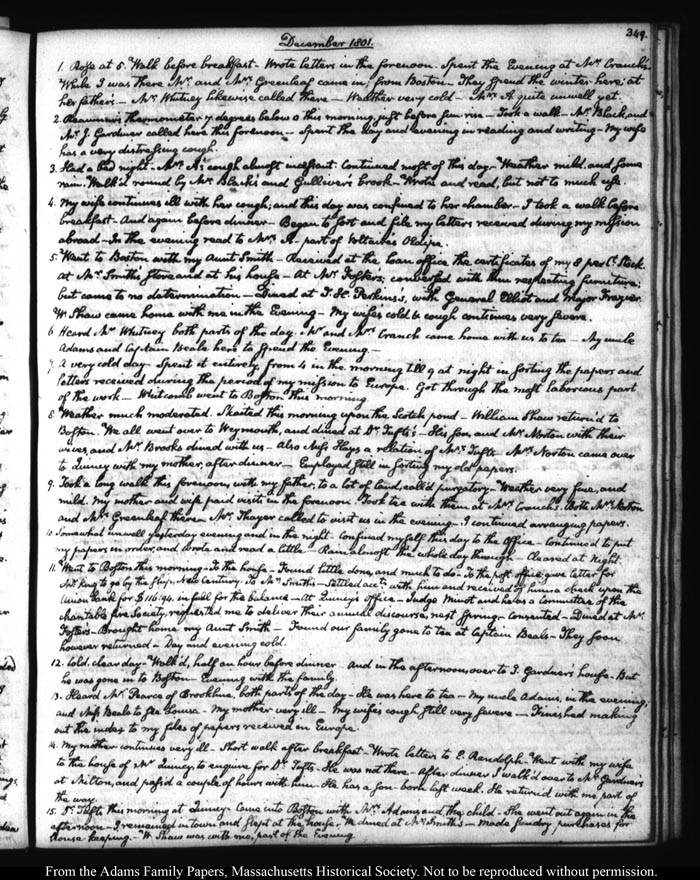 December 1801.
349.
1. Rose at 5. Walk before breakfast. Wrote letters in the forenoon. Spent the Evening at Mr. Cranch's.
While I was there Mr. and Mrs. Greenleaf came in, from Boston. They spend the winter here; at
her fathers. — Mr. Whitney likewise called there — Weather very cold — Mrs. A quite unwell yet.
2. Reaumurs thermometer 7 degrees below 0 this morning, just before sun rise — Took a walk — Mr. Black, and
Mr. J. Gardner called here this forenoon — Spent the day and evening in reading and writing — My wife
has a very distressing cough.
3. Had a bad night. Mrs. A's cough almost incessant. Continued most of this day. Weather mild, and some
rain. Walk'd round by Mr. Black's and Gulliver's brook. Wrote and read, but not to much use.
4. My wife continues ill with her cough; and this day was confined to her chamber. I took a walk before
breakfast. And again before dinner. Began to sort and file my letters received during my mission
abroad — In the evening read to Mrs. A. part of Voltaires Oedipe.
5. Went to Boston with my Aunt Smith — Received at the loan office the certificates of my 8 per Ct. Stock
at Mr. Smiths store and at his house — At Mr. Fosters; conversed with him respecting furniture;
but came to no determination — Dined at T. H. Perkins's, with General Elliot and Major Frazier.
W. Shaw came home with me in the Evening — My wifes cold & cough continues very severe.
6 Heard Mr. Whitney both parts of the day. Mr. and Mrs. Cranch came home with us to tea — My uncle
Adams and Captain Beale here to spend the Evening —
7. A very cold day. Spent it entirely, from 4 in the morning till 9 at night in sorting the papers and
letters received during the period of my mission to Europe. Got through the most laborious part
of the work — Whitcomb went to Boston this morning
8. Weather much moderated. Skaited this morning upon the Scotch pond — William Shaw return'd to
Boston. We all went over to Weymouth, and dined at Dr. Tufts's — His son, and Mr. Norton with their
wives, and Mr. Brooks dined with us — Also Miss Hays a relation of Mrs. Tufts. Mr. Norton came over
to Quincy with my mother, after dinner — Employed still in sorting my old papers.
9. Took a long walk this forenoon, with my father, to a lot of land, call'd purgatory. Weather very fine, and
mild. My mother and wife paid visits in the forenoon. Took tea with them at Mr. Cranch's. Both Mr. Norton
and Mr. Greenleaf there — Mr. Thayer called to visit us in the evening. I continued arranging papers.
10. Somewhat unwell yesterday evening and in the night. Confined myself this day to the Office — Continued to put
my papers in order, and wrote and read a little. Rain almost the whole day through — Cleared at Night.
11. Went to Boston this morning — To the house — Found little done, and much to do. To the post office; gave letter for
Mr. King to go by the ship, New Century. To Mr. Smiths — Settled accts. with him and received of him a check upon the
Union Bank for $116:94. in full for the balance — At Quincy's Office — Judge Minot and he as a Committee of the
charitable fire Society, requested me to deliver their annual discourse, next Spring — Consented — Dined at Mr.
Fosters — Brought home my Aunt Smith — Found our family gone to tea at Captain Beale's — They soon
however returned — Day and evening cold.
12. Cold, clear day — Walk'd, half an hour before dinner — and in the afternoon, over to J. Gardner's house. But
he was gone in to Boston — Evening with the family.
13. Heard Mr. Pearce of Brookline, both parts of the day — He was here to tea — My uncle Adams, in the evening,
and Miss Beale to see Louisa — My mother very ill — My wife's cough still very severe — Finished making
out the index to my files of papers received in Europe.
14. My mother continues very ill. Short walk after breakfast. Wrote letters to E. Randolph. Went with my wife
to the house of Mr. Quincy, to enquire for Dr. Tufts. He was not there. After dinner I walk'd over to Mr. Gardners
at Milton, and pass'd a couple of hours with him — He has a son born last week. He returned with me part of
the way.
15. Dr. Tufts this morning at Quincy. Came into Boston with Mrs. Adams and the child — She went out again in the
afternoon — I remained in town and slept at the house. We dined at Mr. Smith's — Made sundry purchases for
House keeping — W. Shaw was with me, part of the Evening.
From the Adams Family Papers, Massachusetts Historical Society. Not to be reproduced without permission.